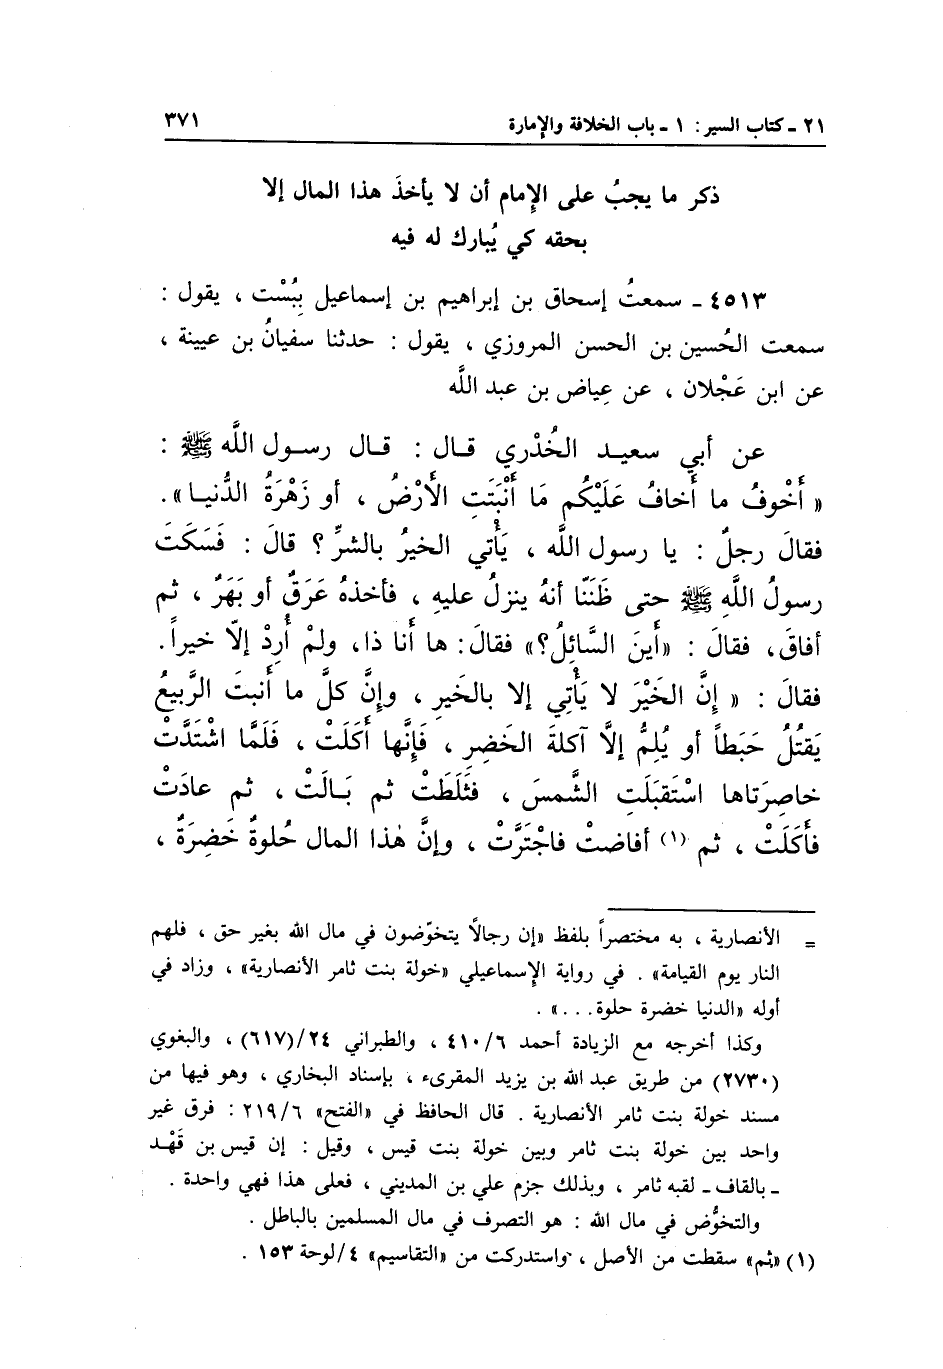 ٢١ ـ كتاب السير : ١ ـ باب الخلافة والإمارة ٣٧١
ذكر ما يجبُ على الإمام أن لا يأخذَ هذا المال إلا
بحقه كي يُبارك له فيه
٤٥١٣ ـ سمعتُ إسحاق بن إبراهيم بن إسماعيل ببُسْت ، يقول :
سمعت الحُسين بن الحسن المروزي ، يقول : حدثنا سفيانُ بن عيينة ،
عن ابن عَجْلان ، عن عِياض بن عبد اللَّه
عن أبي سعيد الخُدْري قال : قال رسول اللَّه ﷺ :
« أَخْوفُ ما أَخافُ عَلَيْكُم مَا أَنْبَتَتِ الأَرْضُ ، أو زَهْرَةُ الدُّنيا » .
فقالَ رجلٌ : يا رسول اللَّه ، يَأْتي الخيرُ بالشرِّ ؟ قالَ : فَسَكَتَ
رسولُ اللَّهِ ﷺ حتى ظَنَنَّا أنهُ ينزلُ عليهِ ، فأخذهُ عَرَقٌ أو بَهَرٌ ، ثم
أفاقَ، فقالَ : «أَينَ السَّائِلُ؟» فقالَ: ها أَنا ذا، ولمْ أُرِدْ إلّا خيراً.
فقالَ : « إنَّ الخَيْرَ لا يَأْتِي إلا بالخَيرِ ، وإنَّ كلَّ ما أَنبتَ الرَّبيعُ
يَقتُلُ حَبَطاً أو يُلِمُّ إلاَّ آكلةَ الخَضِرِ ، فَإنَّها أَكَلَتْ ، فَلَمَّا اشْتَدَّتْ
خاصِرَتاها اسْتَقبَلَتِ الشَّمسَ ، فَثَلَطَتْ ثم بَالَتْ ، ثم عادَتْ
فأَكَلَتْ ، ثم (١) أفاضتْ فاجْتَرَّتْ ، وإنَّ هٰذا المال حُلوةٌ خَضِرَةٌ ،
= الأنصارية ، به مختصراً بلفظ «إن رجالًا يتخوّضون في مال الله بغير حق ، فلهم
النار يوم القيامة» . في رواية الإسماعيلي «خولة بنت ثامر الأنصارية» ، وزاد في
أوله «الدنيا خضرة حلوة . . .» .
وكذا أخرجه مع الزيادة أحمد ٤١٠/٦ ، والطبراني ٢٤/(٦١٧) ، والبغوي
(٢٧٣٠) من طريق عبد الله بن يزيد المقرىء ، بإسناد البخاري ، وهو فيها من
مسند خولة بنت ثامر الأنصارية . قال الحافظ في «الفتح» ٢١٩/٦ : فرق غير
واحد بين خولة بنت ثامر وبين خولة بنت قيس ، وقيل : إن قيس بن قَهْد
ـ بالقاف ـ لقبه ثامر ، وبذلك جزم علي بن المديني ، فعلى هذا فهي واحدة .
والتخوُّض في مال الله : هو التصرف في مال المسلمين بالباطل .
(١) «ثم» سقطت من الأصل ، واستدركت من «التقاسيم» ٤/لوحة ١٥٣ .